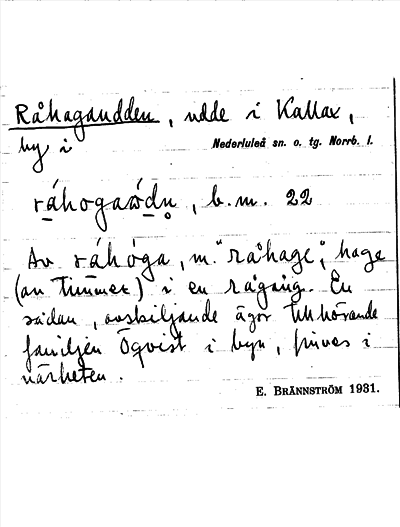 Råhagaudden, udde i Kallax,
by i Nederluleå sn. o. tg. Norrb. l.
ráhogaωdn̥, b.m. 22
Av ráhóga, m. "råhage", hage
(av timmer) i en rågång. En
sådan, avskiljande ägor tillhörande
familjen Öqvist i byn, finnes i
närheten.
E. BRÄNNSTRÖM 1931.